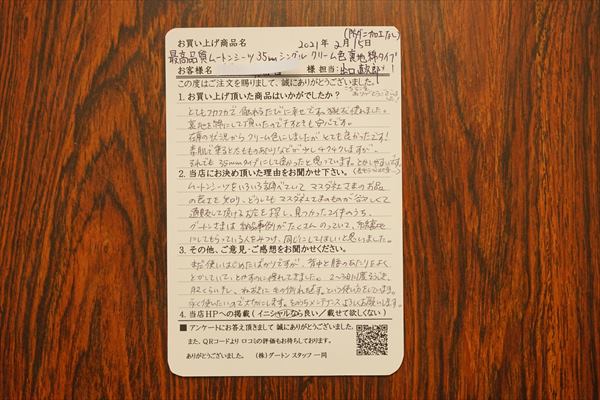 (防ダニ加工なし)
お買い上げ商品名 2021年2月15日
最高品質ムートンシーツ 35mmシングル クリーム色裏地綿タイプ
お客様名 様 担当:出口
この度はご注文を賜りまして、誠にありがとうございました。
1. お買い上げ頂いた商品はいかがでしたか?
とてもフカフカで 触れるたびに幸せです。
裏地を綿にして頂いたので子ども安心です。
在庫の状況からクリーム色にしましたがとても良かったです!
素肌で乗ると
それでも35mmタイプにして良かったと思っています。
2. 当店にお決め頂いた理由をお聞かせ下さい。
ムートンシーツをいろいろ調べていて マスダ社さまのお品
の良さを知り、どうしてもマスダ社さまのものが欲しくて
通販して頂けるお店を探し、見つかった2件のうち、
ダートンさまは 納品事例がたくさんのっていて、裏綿地
にしてもらっている人をみつけ、同じにしてほしいと思いました。
3. その他、ご意見・ご感想をお聞かせください。
まだ使いはじめたばかりですが、背中と腰のあたりをよく
とかしていて、とかすのに慣れてきました。2〜3日に1度
永く使いたいので大切にします。 メンテナンスよろしくお願いします。
4. 当店HPへの掲載 (イニシャルなら良い/載せて欲しくない)
■アンケートにお答え頂きまして 誠にありがとうございました。
また、QRコードより 口コミの評価もお待ちしております。
ありがとうございました。 (株)ダートン スタッフ一同